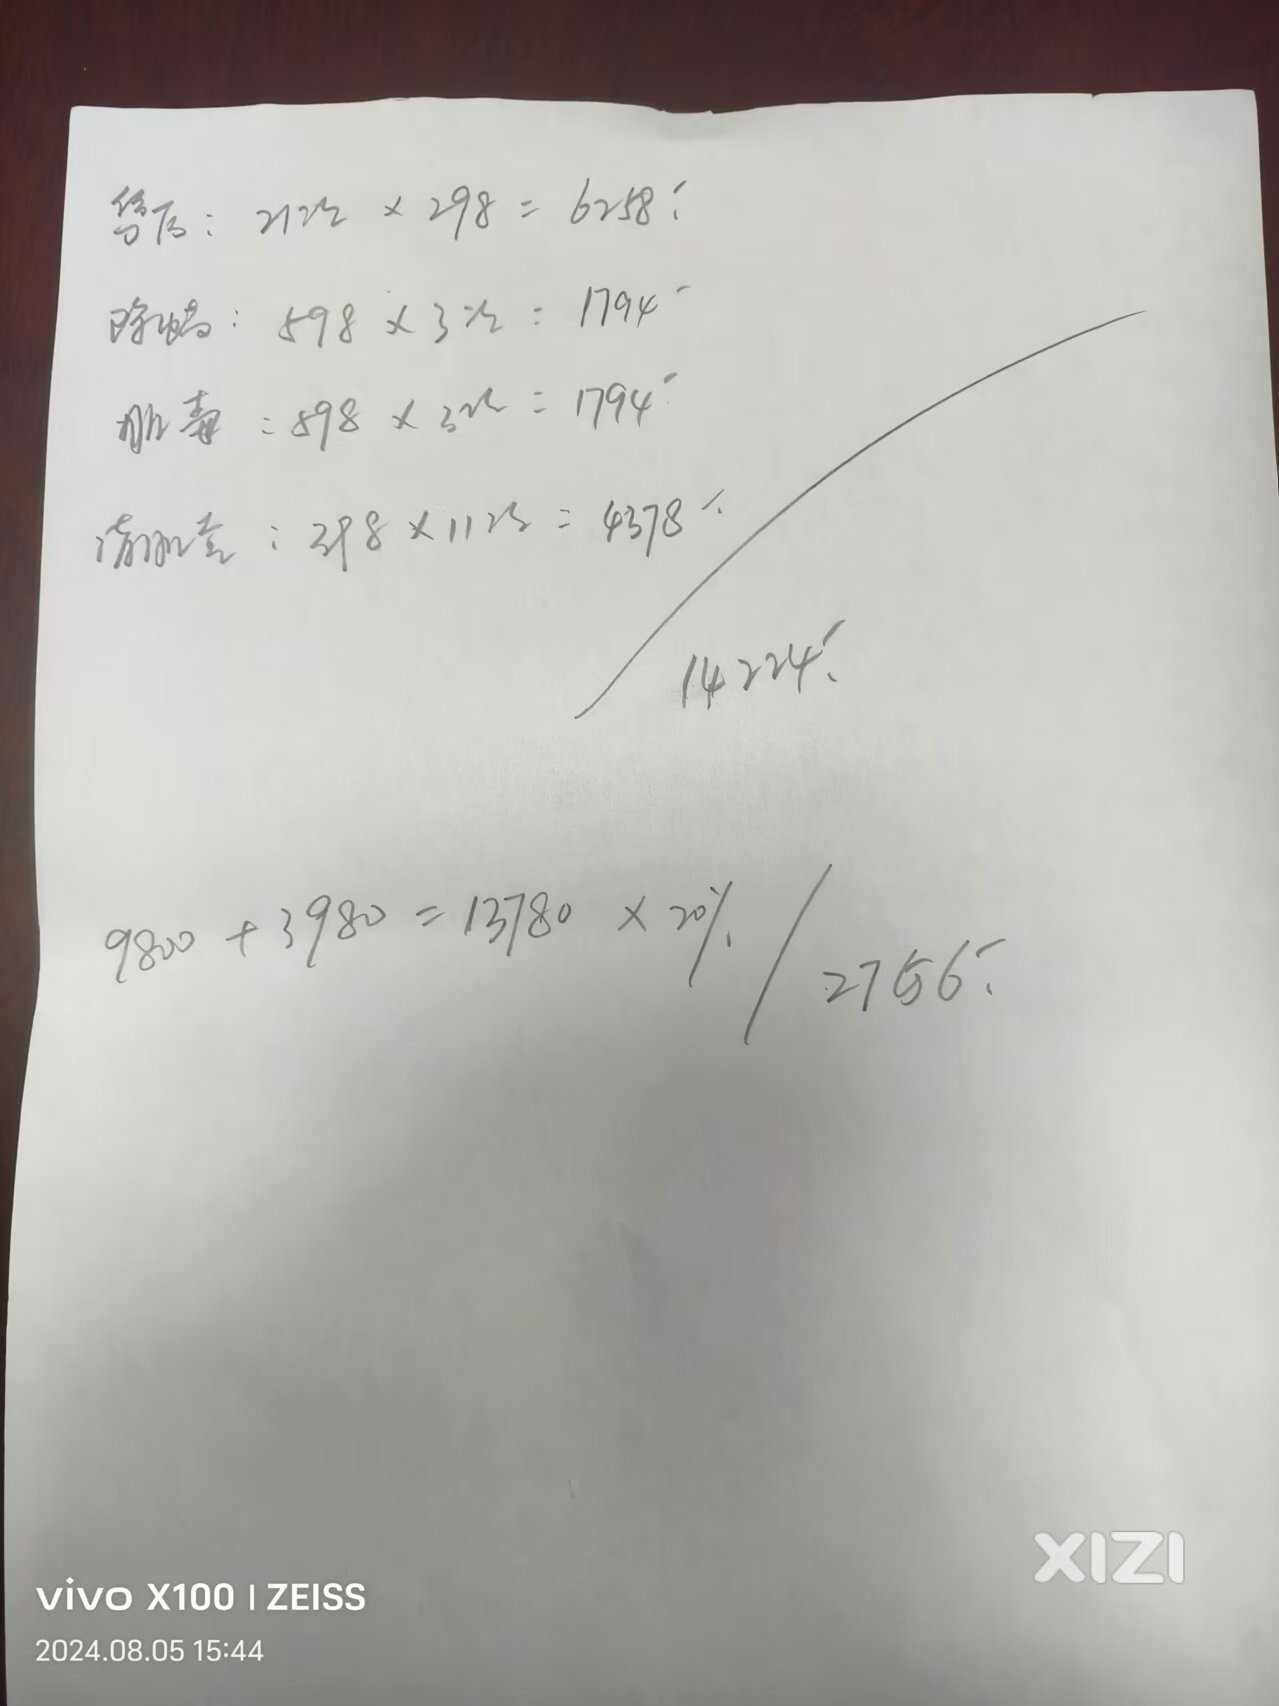 : 21次 × 298 = 6258
: 598 × 3次 = 1794
胎毒 : 598 × 3次 = 1794
: 398 × 11次 = 4378
14224
9800 + 3980 = 13780 × 20% / 2756
XIZI
vivo X100 | ZEISS
2024.08.05 15:44